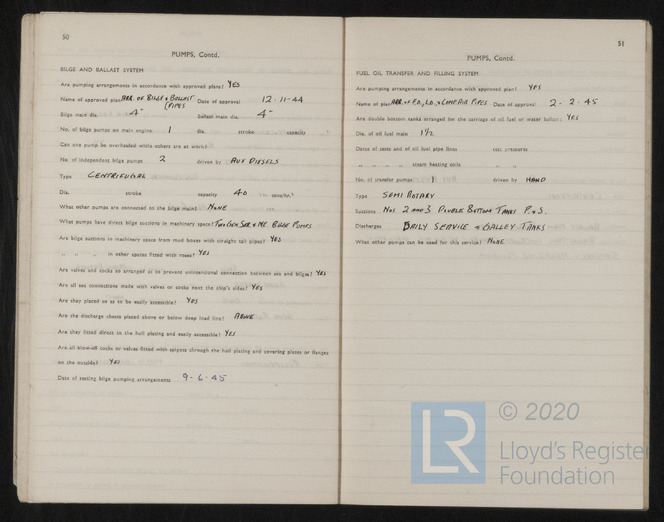 50
PUMPS, Contd.
BILGE AND BALLAST SYSTEM
Are pumping arrangements in accordance with approved plans? YES
Name of approved plan ARR. OF BILGE & BALLAST PIPES Date of approval 12-11-44
Bilge main dia. 4" ballast main dia. 4"
No. of bilge pumps on main engine 1 dia. stroke capacity
Can one pump be overhauled while others are at work?
No. of independent bilge pumps 2 driven by AUX DIESELS
Type CENTRIFUGAL
Dia. stroke capacity 40
What other pumps are connected to the bilge main? NONE
What pumps have direct bilge suctions in machinery space? TWO GEN SER & ME. BILGE PUMPS
Are bilge suctions in machinery space from mud boxes with straight tail pipes? YES
" " " in other spaces fitted with roses? YES
Are valves and cocks so arranged as to prevent unintentional connection between sea and bilges? YES
Are all sea connections made with valves or cocks next the ship's sides? YES
Are they placed so as to be easily accessible? YES
Are the discharge chests placed above or below deep load line? ABOVE
Are they fitted direct to the hull plating and easily accessible? YES
Are all blow-off cocks or valves fitted with spigots through the hull plating and covering plates or flanges
on the outside? YES
Date of testing bilge pumping arrangements 9-6-45
51
PUMPS, Contd.
FUEL OIL TRANSFER AND FILLING SYSTEM
Are pumping arrangements in accordance with approved plan? YES
Name of plan ARR. OF F.O., L.O. & COMP. AIR PIPES Date of approval 2-2-45
Are double bottom tanks arranged for the carriage of oil fuel or water ballast? YES
Dia. of oil fuel main 1½
Dates of tests and of oil fuel pipe lines test pressures
" " " " steam heating coils "
No. of transfer pumps 1 driven by HAND
Type SEMI ROTARY
Suctions Nos 2 AND 3 DOUBLE BOTTOM TANKS P.&S.
Discharges DAILY SERVICE & GALLEY TANKS
What other pumps can be used for this service? NONE
LR
© 2020
Lloyd's Register
Foundation